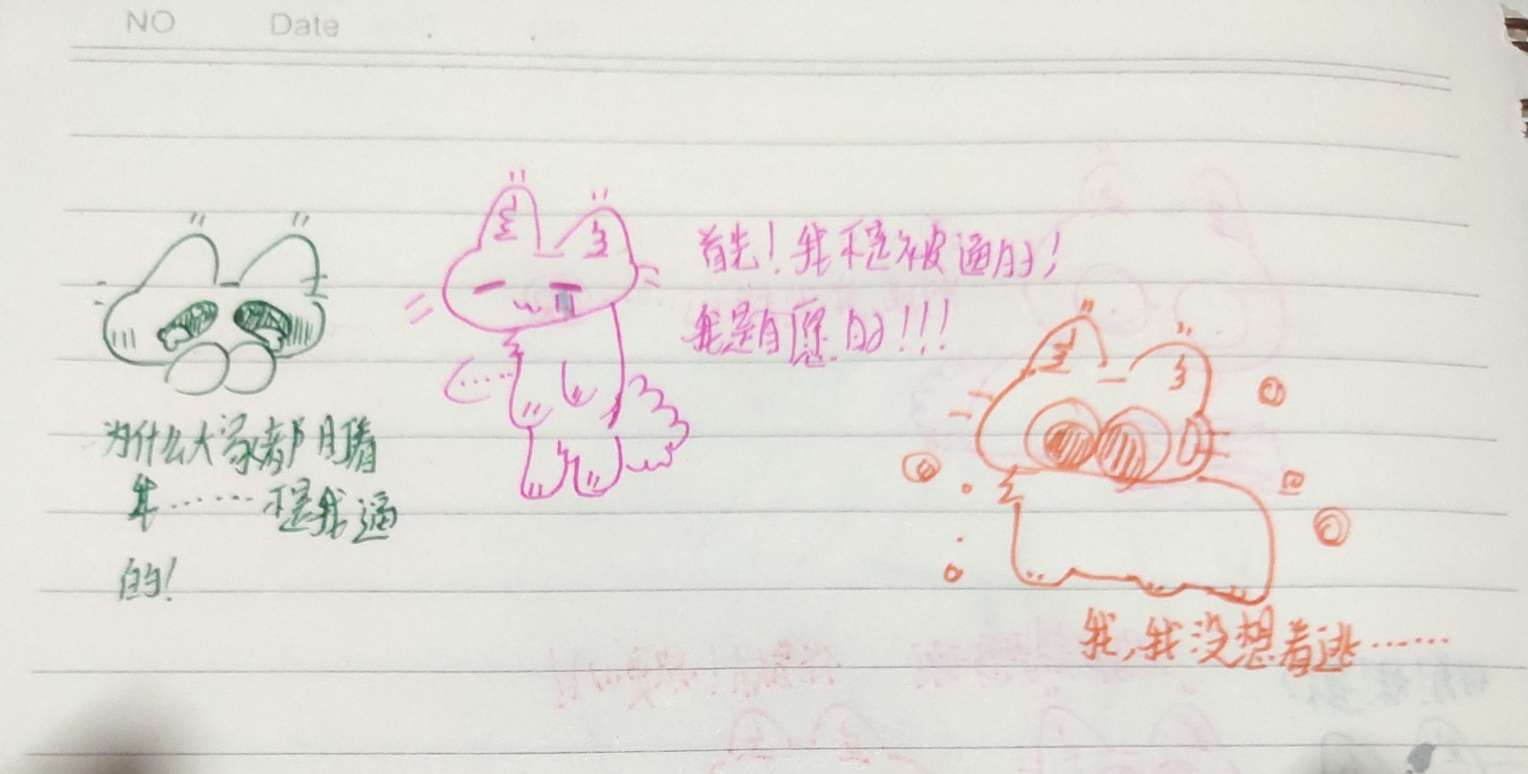 NO Date
为什么大家都盯着
我……不是我逼
的！
首先！我不是被逼的！
我是自愿的！！！
我，我没想着逃……